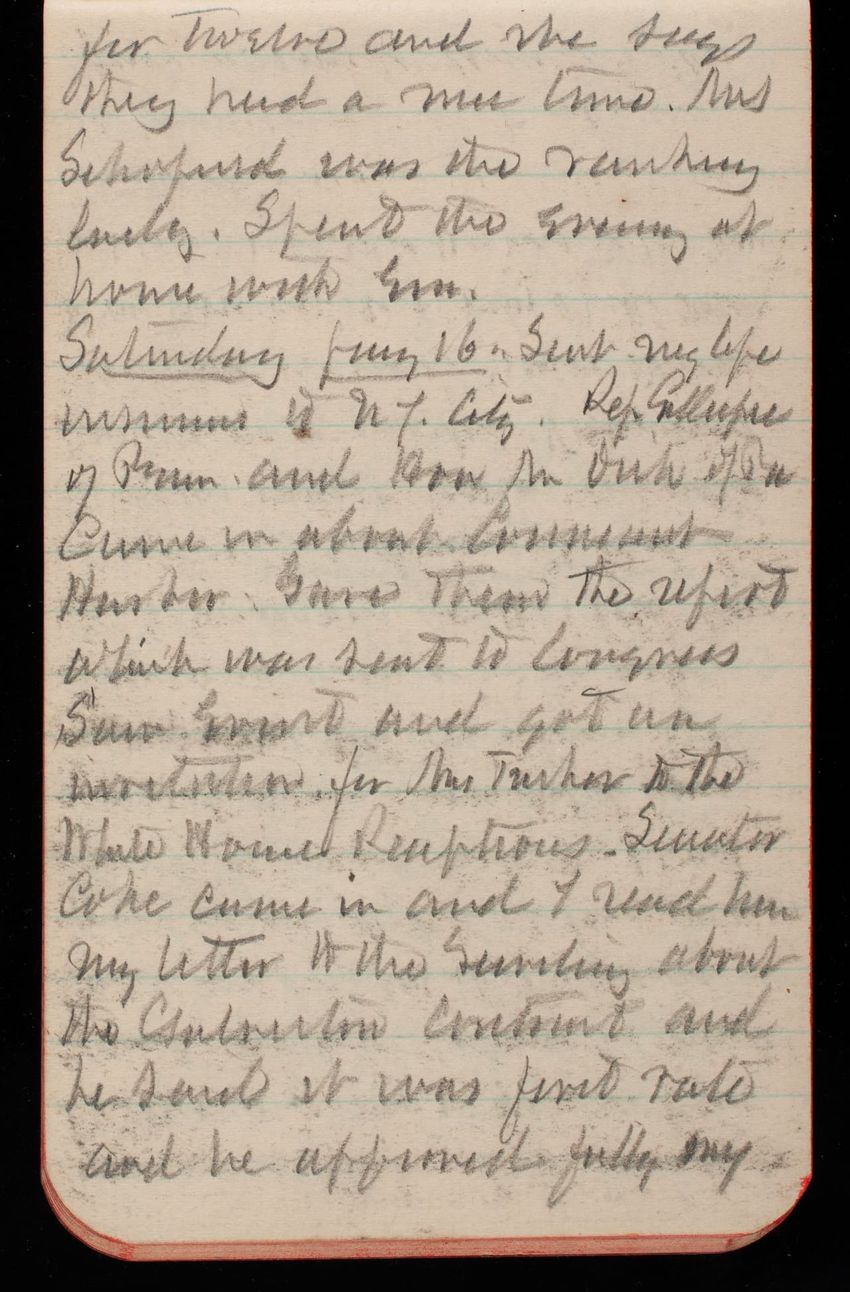 for twelve and she says
they had a nice time. Mrs
Schofield was the ranking
lady. Spent the evening at
home with Em.
Saturday Jany 16. Sent my life
insurance to N Y. City. Rep. Gillespie
of Penn. and Hon Mr Dick of Pa
Came in about Conneaut
Harbor. Gave them the report
which was sent to Congress
Saw Ernst and got an
invitation for Mrs Tucker to the
White House Receptions. Senator
Coke came in and I read him
my letter to the Secretary about
the Galveston Contract and
he said it was first rate
and he approved fully my